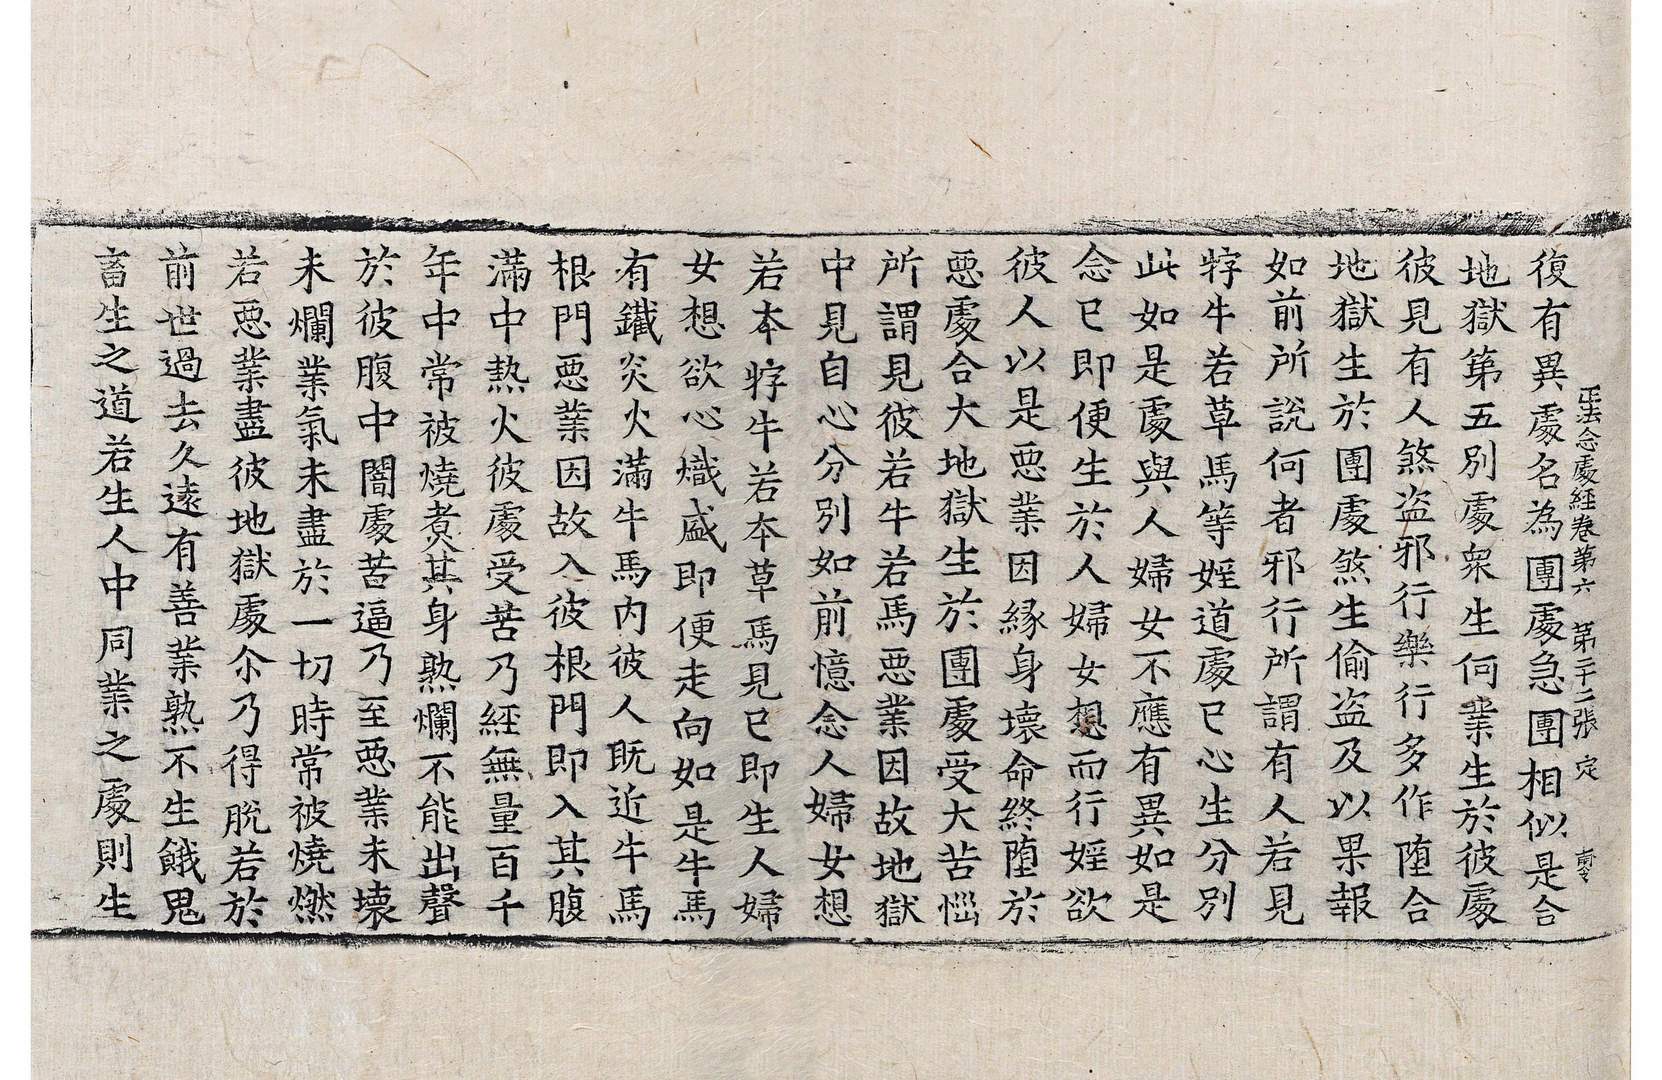 正法念處經卷第六 第二十二張 定
復有異處名為團處急團相似是合
地獄第五別處衆生何業生於彼處
彼見有人煞盗邪行樂行多作堕合
地獄生於團處煞生偷盗及以果報
如前所說何者邪行所謂有人若見
牸牛若草馬等婬道處已心生分別
此如是處與人婦女不應有異如是
念已即便生於人婦女想而行婬欲
彼人以是惡業因縁身壊命終堕於
惡處合大地獄生於團處受大苦惱
所謂見彼若牛若馬惡業因故地獄
中見自心分別如前憶念人婦女想
若本牸牛若本草馬見已即生人婦
女想欲心熾盛即便走向如是牛馬
有鐵炎火滿牛馬内彼人既近牛馬
根門惡業因故入彼根門即入其腹
滿中熱火彼處受苦乃經無量百千
年中常被燒煮其身熟爛不能出聲
於彼腹中闇處苦逼乃至惡業未壊
未爛業氣未盡於一切時常被燒燃
若惡業盡彼地獄處尒乃得脱若於
前世過去久遠有善業熟不生餓鬼
畜生之道若生人中同業之處則生